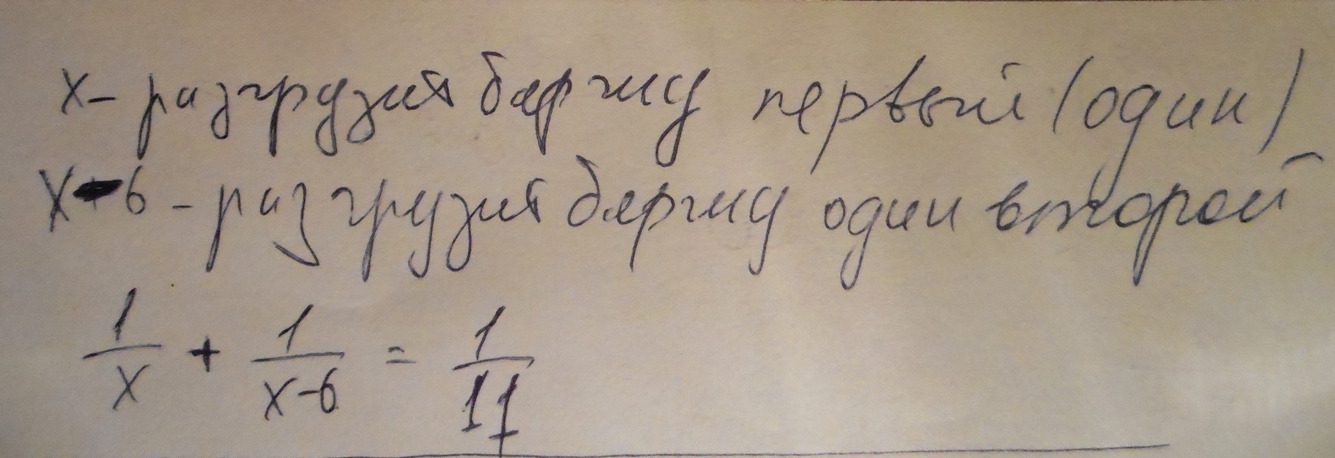 x - разгрузит баржу первый (один)
x - 6 - разгрузит баржу один второй
1/x + 1/(x-6) = 1/11